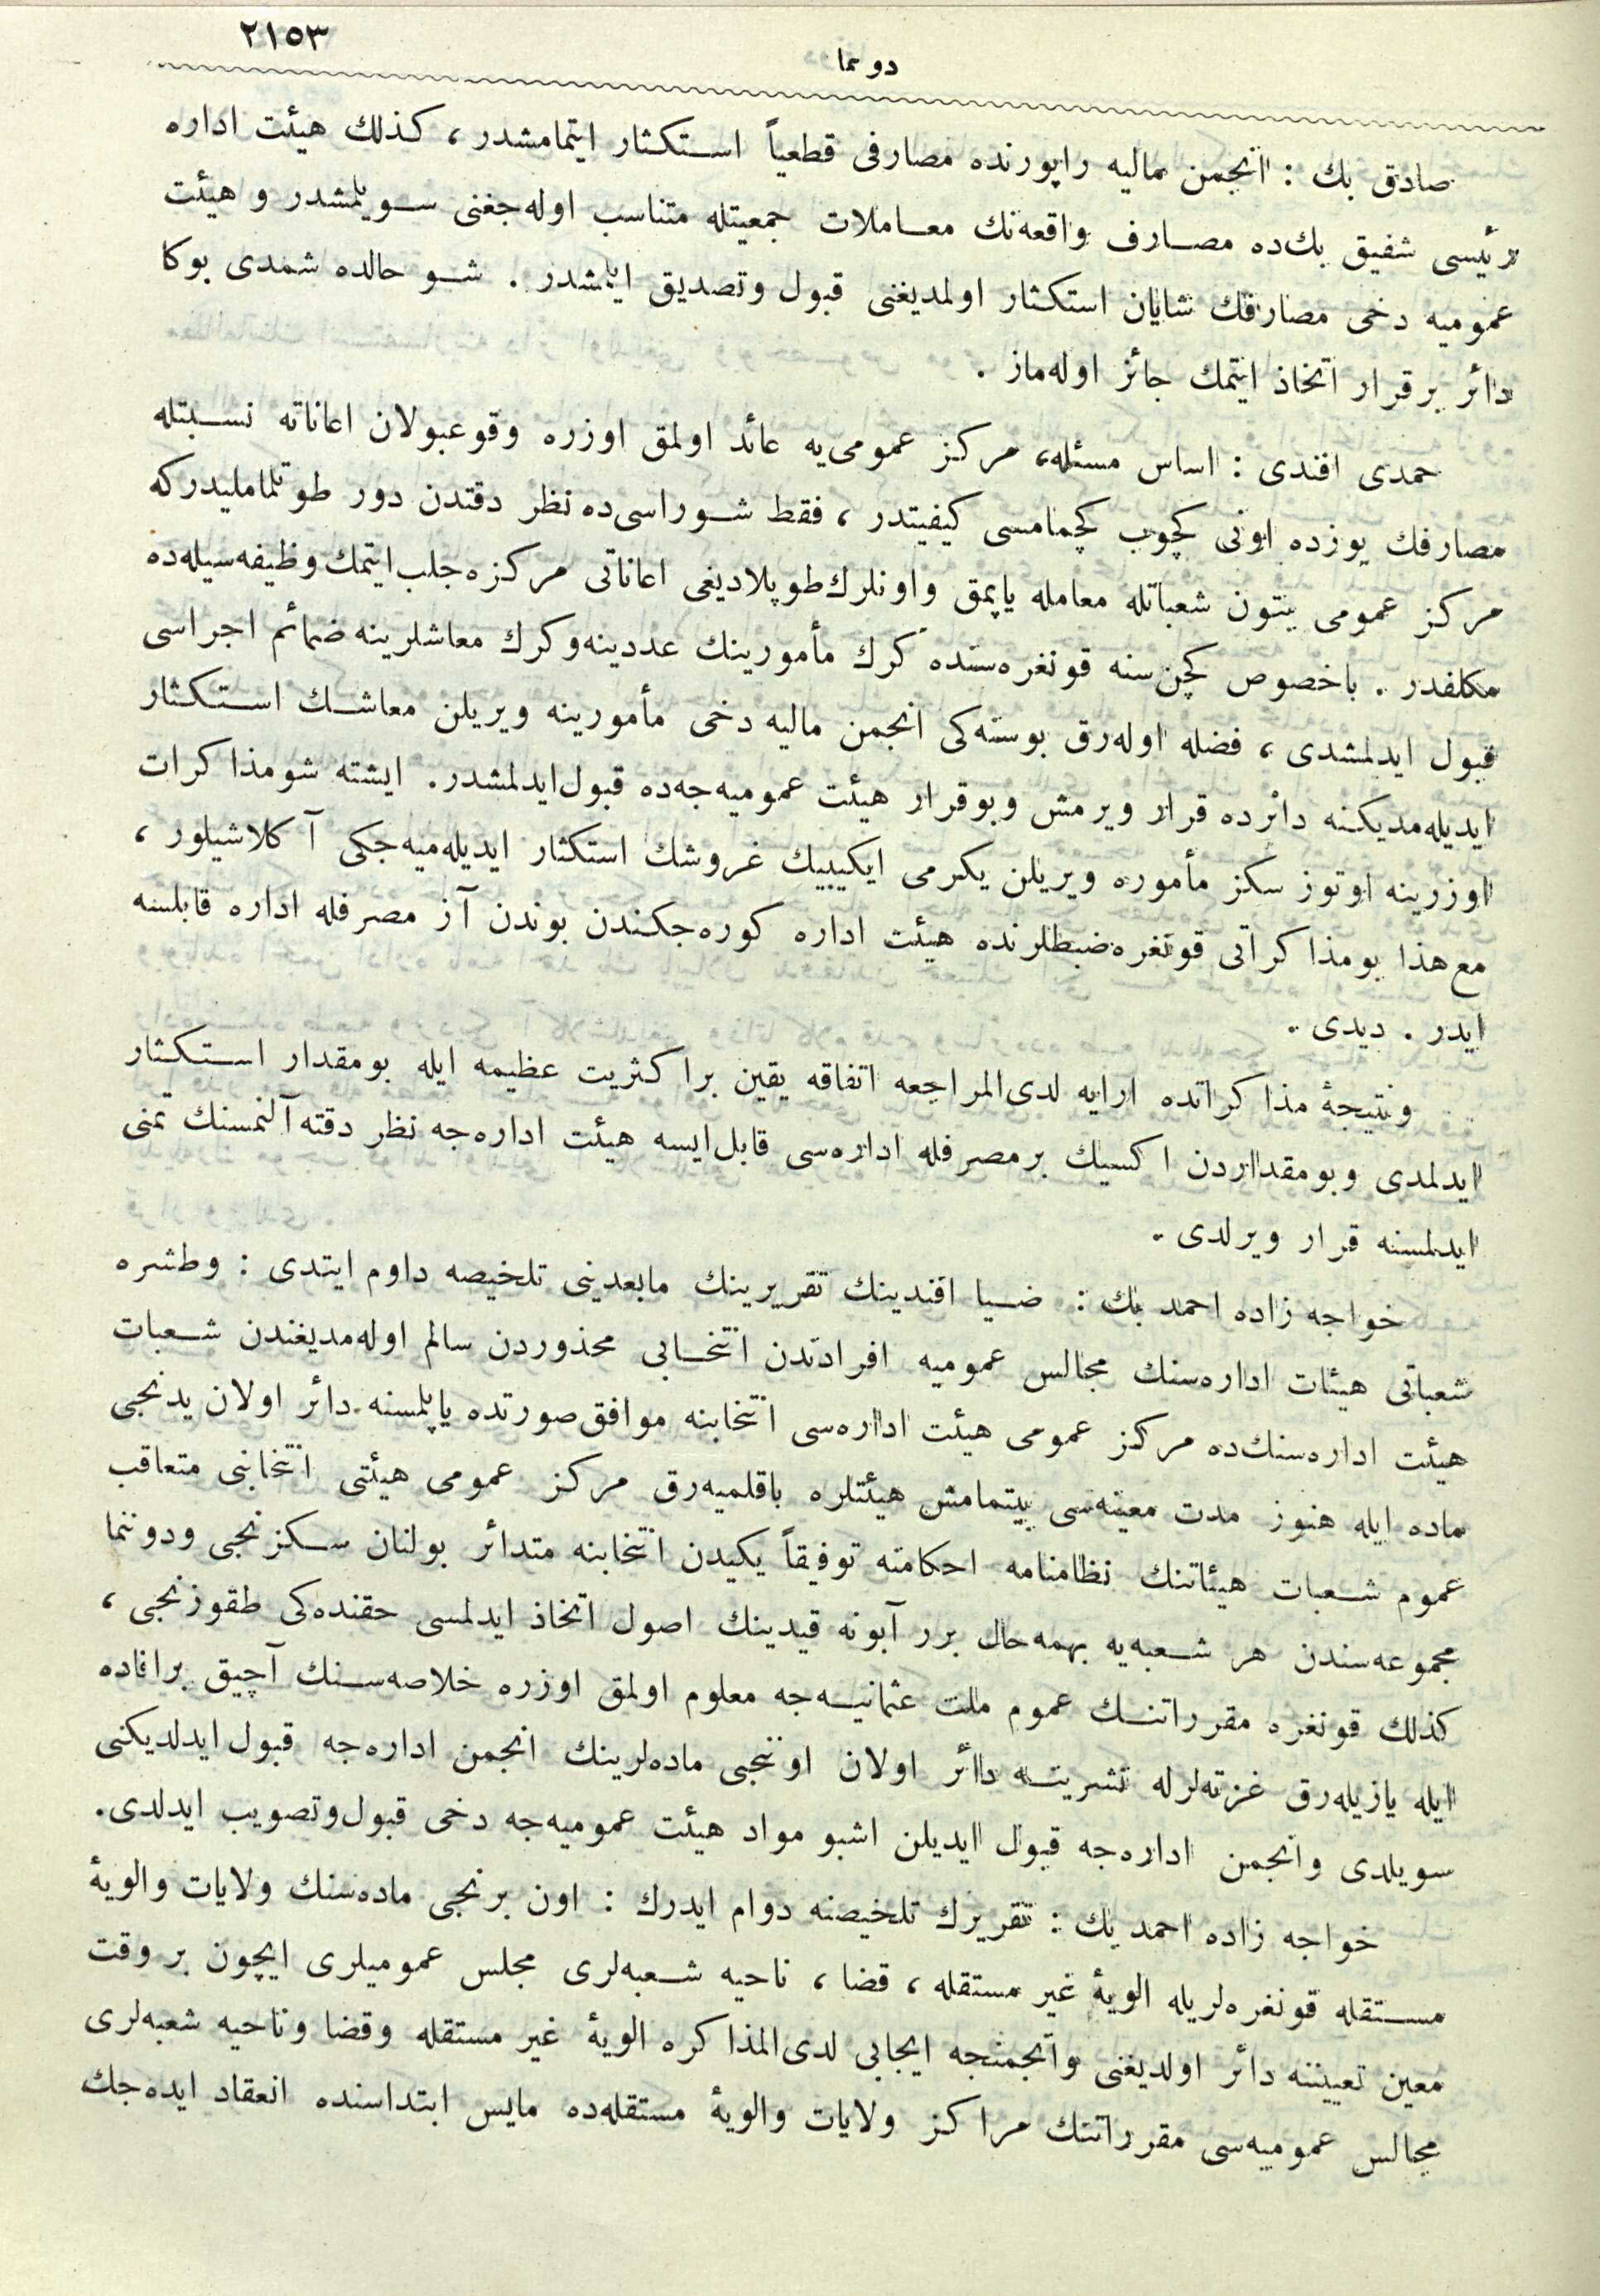 ٢١٥٣
دو نما
صادق بك : انجمن ماليه راپورنده مصارفى قطعياً استكثار ايتمامشدر ، كذلك هيئت اداره
رئيسى شفيق بك‌ده مصارف واقعه‌نك معاملات جمعيتله متناسب اوله‌جغنى سويلمشدر و هيئت
عموميه دخى مصارفك شايان استكثار اولمديغنى قبول وتصديق ايلمشدر . شو حالده شمدى بوكا
دائر بر قرار اتخاذ ايتمك جائز اوله‌ماز .
حمدى افندى : اساس مسئله، مركز عمومى‌يه عائد اولمق اوزره وقوعبولان اعاناته نسبتله
مصارفك يوزده اونى كچوب كچمامسى كيفيتدر ، فقط شوراسى‌ده نظر دقتدن دور طوتلماملیدركه
مركز عمومى بتون شعباتله معامله ياپمق واونلرك‌طوپلاديغى اعاناتى مركزه جلب‌ايتمك وظيفه‌سيله‌ده
مكلفدر . باخصوص كچن سنه قونغره‌سنده كرك مأمورينك عددينه‌وكرك معاشلرينه ضمائم اجراسى
قبول ايدلمشدى ، فضله اوله‌رق بوسنه‌كى انجمن ماليه دخى مأمورينه ويريلن معاشك استكثار
ايديله‌مديكنه دائرده قرار ويرمش وبوقرار هيئت عموميه‌جه‌ده قبول‌ايدلمشدر. ايشته شومذاكرات
اوزرينه اوتوز سكز مأموره ويريلن يكرمى ايكيبيك غروشك استكثار ايديله‌ميه‌جكى آكلاشيلور ،
مع‌هذا بومذاكراتى قونغره‌ضبطلرنده هيئت اداره كوره‌جكندن بوندن آز مصرفله اداره قابلسه
ايدر . ديدى .
ونتيجهٔ مذاكراتده ارايه لدى‌المراجعه اتفاقه يقين براكثريت عظيمه ايله بومقدار استكثار
ايدلمدى وبومقداردن اكسيك برمصرفله اداره‌سى قابل‌ايسه هيئت اداره‌جه نظر دقته آلنمسنك تمنى
ايدلمسنه قرار ويرلدى .
خواجه زاده احمد بك : ضيا افندينك تقريرينك مابعدينى تلخيصه داوم ايتدى : وطشره
شعباتى هيئات اداره‌سنك مجالس عموميه افرادندن انتخابى محذوردن سالم اوله‌مديغندن شعبات
هيئت اداره‌سنك‌ده مركز عمومى هيئت اداره‌سى انتخابنه موافق‌صورتده ياپلمسنه دائر اولان يدنجى
ماده ايله هنوز مدت معينه‌سى بيتمامش هيئتلره باقلميه‌رق مركز عمومى هيئتى انتخابنى متعاقب
عموم شعبات هيئاتنك نظامنامه احكامنه توفيقاً يكيدن انتخابنه متدائر بولنان سكزنجى ودوننما
مجموعه‌سندن هر شعبه‌يه بهمه‌حال برر آبونه قيدينك اصول اتخاذ ايدلمسى حقنده‌كى طقوزنجى ،
كذلك قونغره مقرراتنك عموم ملت عثمانيه‌جه معلوم اولمق اوزره خلاصه‌سنك آچيق برافاده
ايله يازيله‌رق غزته‌لرله نشرينه دائر اولان اوننجبى ماده‌لرينك انجمن اداره‌جه قبول ايدلديكنى
سويلدى وانجمن اداره‌جه قبول ايديلن اشبو مواد هيئت عموميه‌جه دخى قبول‌وتصويب ايدلدى.
خواجه زاده احمد بك : تقريرك تلخيصنه دوام ايدرك : اون برنجى ماده‌سنك ولايات والويهٔ
مستقله قونغره‌لريله الويهٔ غير مستقله ، قضا ، ناحيه شعبه‌لرى مجلس عموميلرى ايچون بر وقت
معين تعييننه دائر اولديغنى وانجمنجه ايجابى لدى‌المذاكره الويهٔ غير مستقله وقضا وناحيه شعبه‌لرى
مجالس عموميه‌سى مقرراتنك مراكز ولايات والويهٔ مستقله‌ده مايس ابتداسنده انعقاد ايده‌جك